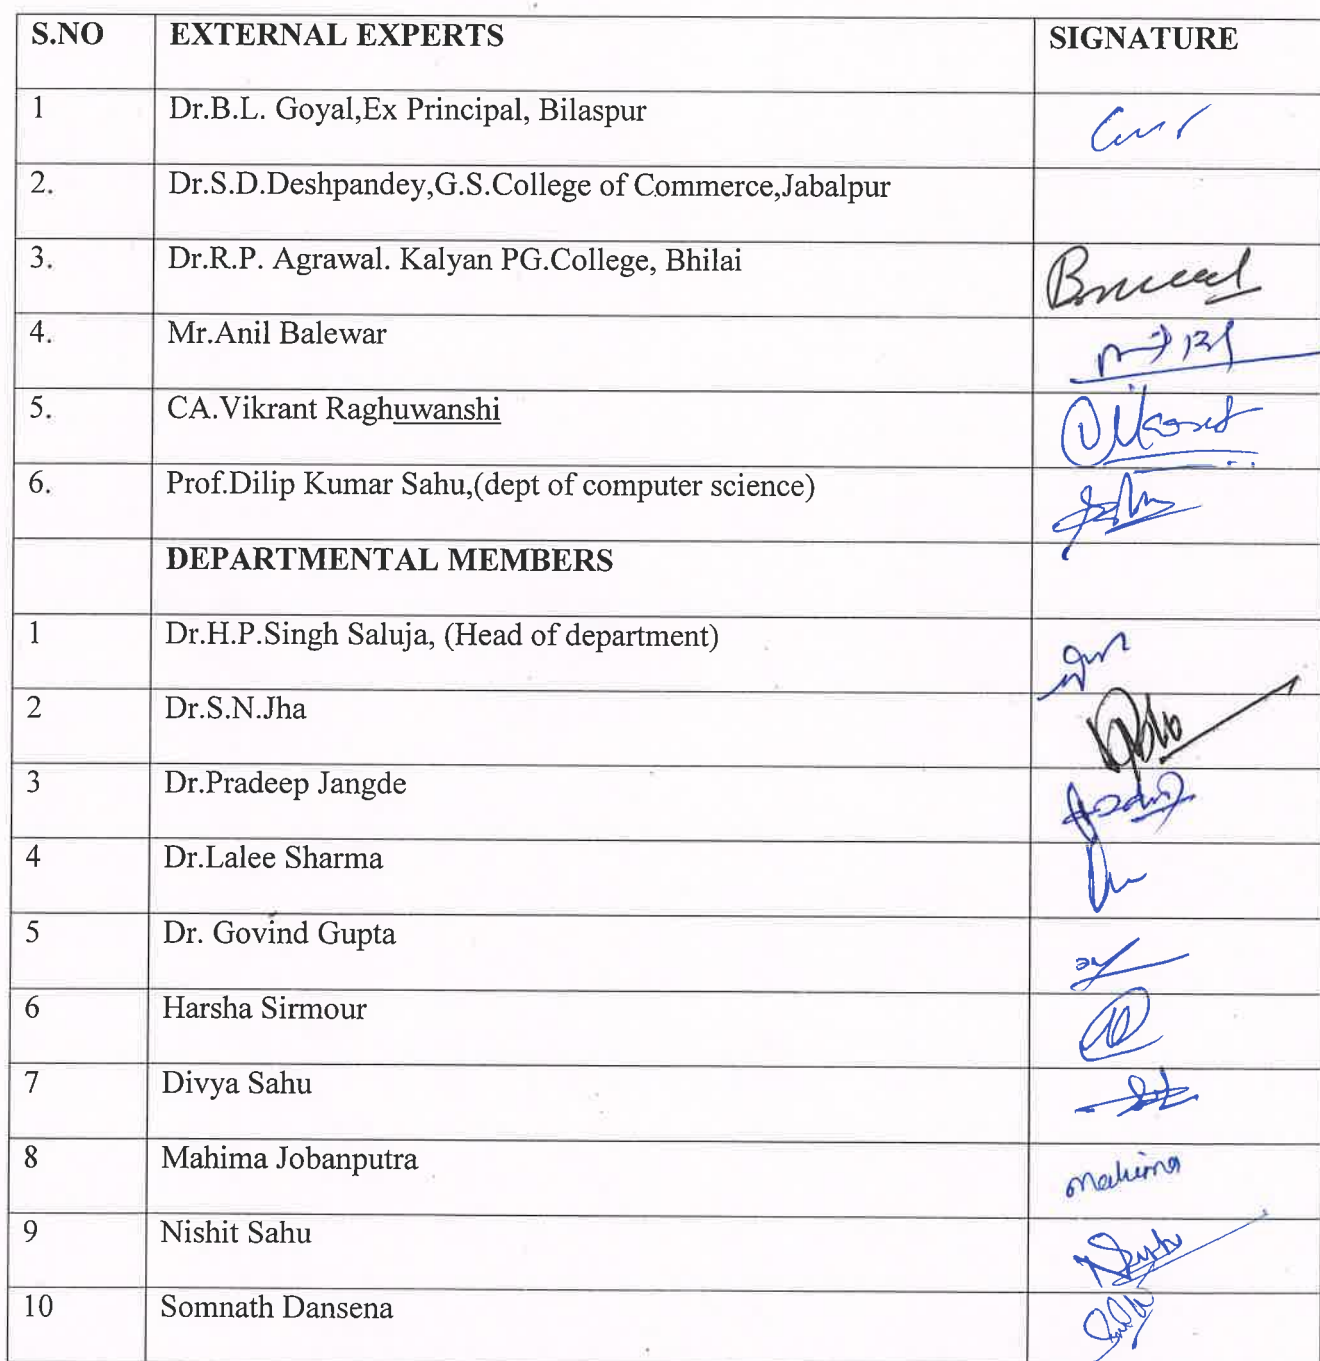 S.NO EXTERNAL EXPERTS SIGNATURE
1 Dr.B.L. Goyal,Ex Principal, Bilaspur
2. Dr.S.D.Deshpandey,G.S.College of Commerce,Jabalpur
3. Dr.R.P. Agrawal. Kalyan PG.College, Bhilai
4. Mr.Anil Balewar
5. CA.Vikrant Raghuwanshi
6. Prof.Dilip Kumar Sahu,(dept of computer science)
DEPARTMENTAL MEMBERS
1 Dr.H.P.Singh Saluja, (Head of department)
2 Dr.S.N.Jha
3 Dr.Pradeep Jangde
4 Dr.Lalee Sharma
5 Dr. Govind Gupta
6 Harsha Sirmour
7 Divya Sahu
8 Mahima Jobanputra Mahima
9 Nishit Sahu
10 Somnath Dansena